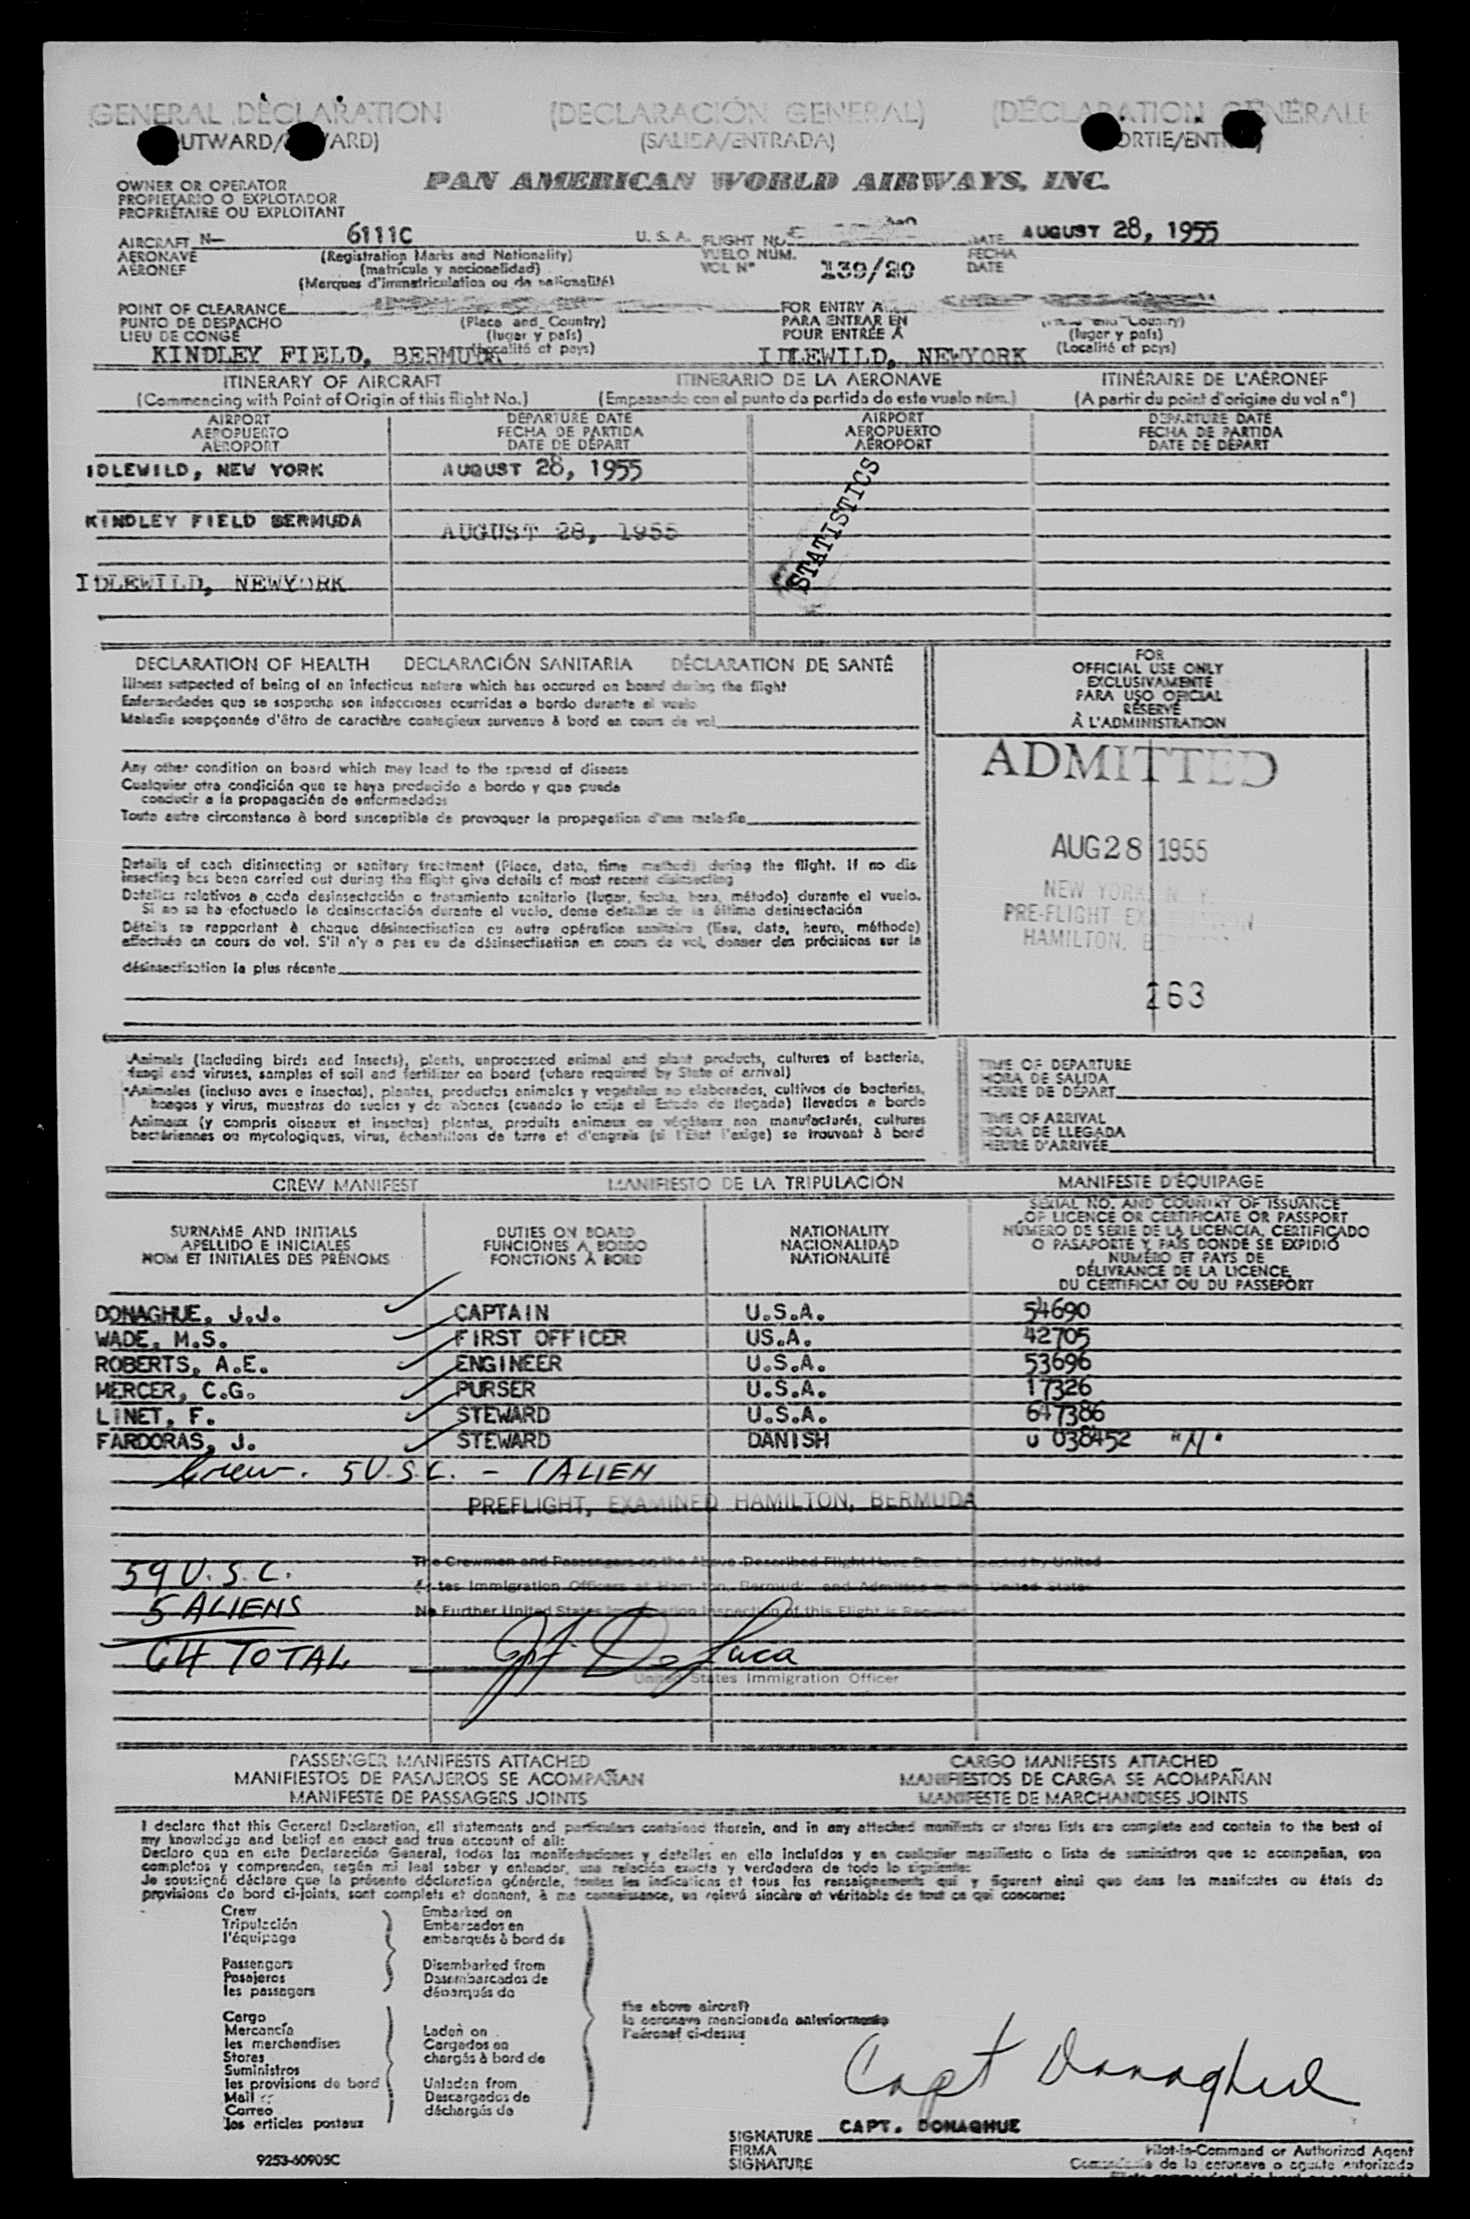 GENERAL DECLARATION (DECLARACIÓN GENERAL) (DÉCLARATION GÉNÉRALE
UTWARD/ ARD) (SALIDA/ENTRADA) ORTIE/ENT
OWNER OR OPERATOR PAN AMERICAN WORLD AIRWAYS, INC.
PROPIETARIO O EXPLOTADOR
PROPRIÉTAIRE OU EXPLOITANT
AIRCRAFT N- 6111C U. S. A. FLIGHT NO. DATE AUGUST 28, 1955
AERONAVE (Registration Marks and Nationality) VUELO NUM. FECHA
AÉRONEF (matrícula y nacionalidad) VOL Nº 139/20 DATE
(Marques d'immatriculation ou de nationalité)
POINT OF CLEARANCE FOR ENTRY A
PUNTO DE DESPACHO (Place and Country) PARA ENTRAR EN Country)
LIEU DE CONGÉ (lugar y país) POUR ENTRÉE À (lugar y país)
KINDLEY FIELD, BERMUDA (Localité et pays) IDLEWILD, NEWYORK (Localité et pays)
ITINERARY OF AIRCRAFT ITINERARIO DE LA AERONAVE ITINÉRAIRE DE L'AÉRONEF
(Commencing with Point of Origin of this flight No.) (Empezando con el punto de partida de este vuelo núm.) (A partir du point d'origine du vol nº)
AIRPORT DEPARTURE DATE AIRPORT DEPARTURE DATE
AEROPUERTO FECHA DE PARTIDA AEROPUERTO FECHA DE PARTIDA
AÉROPORT DATE DE DÉPART AÉROPORT DATE DE DÉPART
IDLEWILD, NEW YORK AUGUST 28, 1955
STATISTICS
KINDLEY FIELD BERMUDA AUGUST 28, 1955
IDLEWILD, NEWYORK
DECLARATION OF HEALTH DECLARACIÓN SANITARIA DÉCLARATION DE SANTÉ
Illness suspected of being of an infectious nature which has occured on board during the flight
Enfermedades que se sospecha son infecciosas ocurridas a bordo durante el vuelo
Maladie soupçonnée d'être de caractère contagieux survenue à bord en cours de vol
Any other condition on board which may lead to the spread of disease
Cualquier otra condición que se haya producido a bordo y que pueda
conducir a la propagación de enfermedades
Toute autre circonstance à bord susceptible de provoquer la propagation d'une maladie
Details of each disinsecting or sanitary treatment (Place, date, time method) during the flight. If no dis
insecting has been carried out during the flight give details of most recent disinsecting
Detalles relativos a cada desinsectación o tratamiento sanitario (lugar, fecha, hora, método) durante el vuelo.
Si no se ha efectuado la desinsectación durante el vuelo, dense detalles de la última desinsectación
Détails se rapportant à chaque désinsectisation ou autre opération sanitaire (lieu, date, heure, méthode)
effectuée en cours de vol. S'il n'y a pas eu de désinsectisation en cours de vol, donner des précisions sur la
désinsectisation la plus récente
FOR
OFFICIAL USE ONLY
EXCLUSIVAMENTE
PARA USO OFICIAL
RÉSERVÉ
À L'ADMINISTRATION
ADMITTED
AUG 28 1955
NEW YORK, N. Y.
PRE-FLIGHT
HAMILTON,
163
Animals (including birds and insects), plants, unprocessed animal and plant products, cultures of bacteria,
fungi and viruses, samples of soil and fertilizer on board (where required by State of arrival)
*Animales (incluso aves e insectos), plantas, productos animales y vegetales no elaborados, cultivos de bacterias,
hongos y virus, muestras de suelos y de abonos (cuando lo exija el Estado de llegada) llevados a bordo
Animaux (y compris oiseaux et insectes) plantes, produits animaux ou végétaux non manufacturés, cultures
bactériennes ou mycologiques, virus, échantillons de terre et d'engrais (si l'Etat l'exige) se trouvant à bord
TIME OF DEPARTURE
HORA DE SALIDA
HEURE DE DÉPART
TIME OF ARRIVAL
HORA DE LLEGADA
HEURE D'ARRIVÉE
CREW MANIFEST MANIFIESTO DE LA TRIPULACIÓN MANIFESTE D'ÉQUIPAGE
SURNAME AND INITIALS
APELLIDO E INICIALES
NOM ET INITIALES DES PRÉNOMS
DUTIES ON BOARD
FUNCIONES A BORDO
FONCTIONS À BORD
NATIONALITY
NACIONALIDAD
NATIONALITÉ
SERIAL NO. AND COUNTRY OF ISSUANCE
OF LICENCE OR CERTIFICATE OR PASSPORT
NÚMERO DE SERIE DE LA LICENCIA, CERTIFICADO
O PASAPORTE Y PAÍS DONDE SE EXPIDIÓ
NUMÉRO ET PAYS DE
DÉLIVRANCE DE LA LICENCE,
DU CERTIFICAT OU DU PASSEPORT
DONAGHUE, J.J. CAPTAIN U.S.A. 54690
WADE, M.S. FIRST OFFICER US.A. 42705
ROBERTS, A.E. ENGINEER U.S.A. 53696
MERCER, C.G. PURSER U.S.A. 17326
LINET, F. STEWARD U.S.A. 647386
FARDORAS, J. STEWARD DANISH U 038452 "N"
Crew. 5 U.S.C. - 1 ALIEN
PREFLIGHT, EXAMINED HAMILTON, BERMUDA
59 U.S.C.
5 ALIENS
64 TOTAL
The Crewmen and Passengers on the Above Described Flight Have Been Inspected by United
States Immigration Officers at Hamilton, Bermuda and Admitted to the United States
No Further United States Immigration Inspection of this Flight is Required
De Luca
United States Immigration Officer
PASSENGER MANIFESTS ATTACHED CARGO MANIFESTS ATTACHED
MANIFIESTOS DE PASAJEROS SE ACOMPAÑAN MANIFIESTOS DE CARGA SE ACOMPAÑAN
MANIFESTE DE PASSAGERS JOINTS MANIFESTE DE MARCHANDISES JOINTS
I declare that this General Declaration, all statements and particulars contained therein, and in any attached manifests or stores lists are complete and contain to the best of
my knowledge and belief an exact and true account of all:
Declaro que en esta Declaración General, todas las manifestaciones y detalles en ella incluídos y en cualquier manifiesto o lista de suministros que se acompañan, son
completos y comprenden, según mi leal saber y entender, una relación exacta y verdadera de todo lo siguiente:
Je soussigné déclare que la présente déclaration générale, toutes les indications et tous les renseignements qui y figurent ainsi que dans les manifestes ou états de
provisions de bord ci-joints, sont complets et donnent, à ma connaissance, un relevé sincère et véritable de tout ce qui concerne:
Crew Embarked on
Tripulación Embarcados en
l'équipage embarqués à bord de
Passengers Disembarked from
Pasajeros Desembarcados de
les passagers débarqués de
the above aircraft
la aeronave mencionada anteriormente
l'aéronef ci-dessus
Cargo
Mercancía Laden on
les merchandises Cargados en
Stores chargés à bord de
Suministros
les provisions de bord Unladen from
Mail Descargados de
Correo déchargés de
los articles postaux
Capt Donaghue
SIGNATURE CAPT. DONAGHUE
FIRMA Pilot-in-Command or Authorized Agent
SIGNATURE Comandante de la aeronave o agente autorizado
9253-60905C